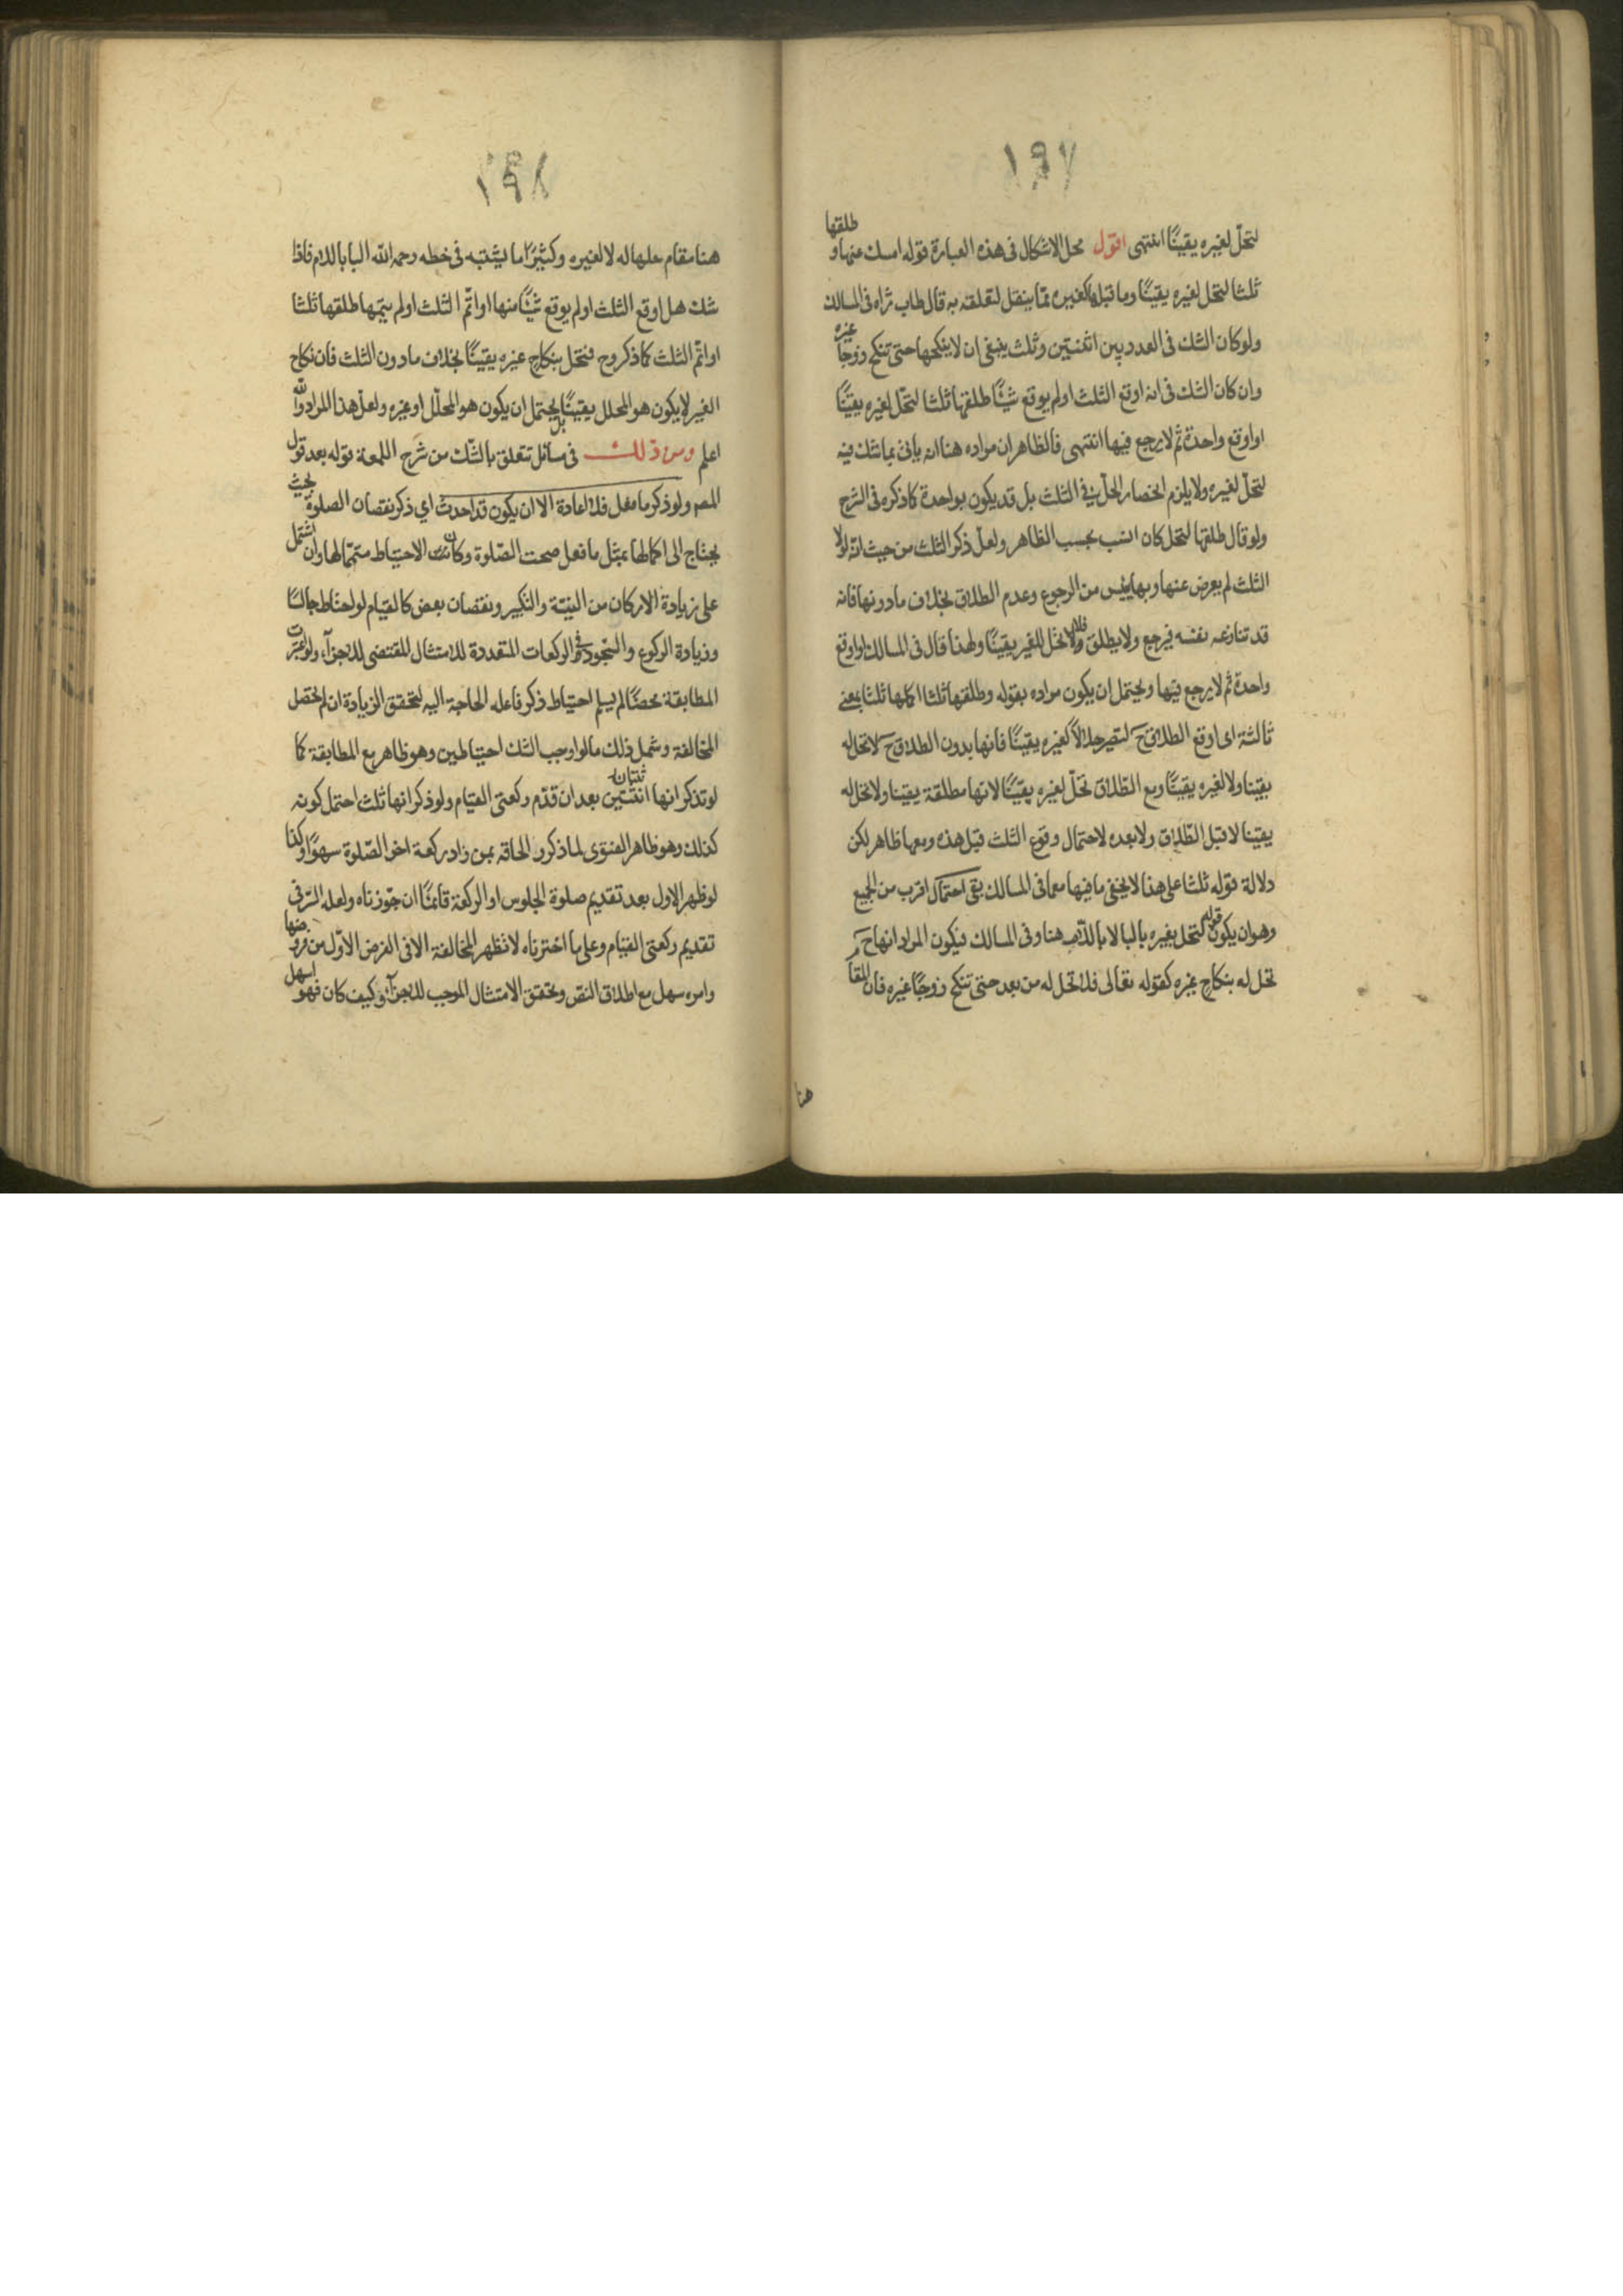 ١٩٧
لتحلّ لغيره يقينًا انتهى اقول محل الاشكال فى هذه العبارة قوله امسك عنها و طلقها
ثلثا لتحل لغيره يقينًا وما قبلها كغيره ممّا ينقل لتعلقه به قال طاب ثراه فى المسالك
ولو كان الشك فى العدد بين اثنتين وثلث ينبغى ان لا ينكحها حتى تنكح زوجًا غيره
وان كان الشك فى انه اوقع الثلث او لم يوقع شيئًا طلقها ثلثا لتحلّ لغيره يقينًا
او اوقع واحدة ثم لا يرجع فيها انتهى فالظاهر ان مراده هنا انه ياتى بما شك فيه
لتحلّ لغيره ولا يلزم انحصار الحلّ فى الثلث بل قد يكون بواحدة كما ذكره فى الشرح
ولو قال طلقها لتحل كان انسب بحسب الظاهر ولعلّ ذكر الثلث من حيث انّه لولا
الثلث لم يعرض عنها وبها ييس من الرجوع وعدم الطلاق بخلاف ما دونها فانه
قد تنازعه نفسه فيرجع ولا يطلق فلا تحلّ للغير يقينًا ولهذا قال فى المسالك او اوقع
واحدة ثم لا يرجع فيها ويحتمل ان يكون مراده بقوله وطلقها ثلثا اكملها ثلثا بمعنى
ثالثة اى اوقع الطلاق ح لتصير حلالاً لغيره يقينًا فانها بدون الطلاق ح لا تحل له
يقينا ولا لغيره يقينًا ومع الطّلاق تحلّ لغيره يقينًا لانها مطلقة يقينا ولا تحل له
يقينا لا قبل الطّلاق ولا بعده لاحتمال وقوع الثلث قبل هذه ومعها ظاهر لكن
دلالة قوله ثلثا على هذا لا يخفى ما فيها مما فى المسالك بقى احتمال اقرب من الجميع
وهو ان يكون قوله لتحل بغيره بالبا لا باللام هنا وفى المسالك فيكون المراد انها ح
تحل له بنكاح غيره كقوله تعالى فلا تحل له من بعد حتى تنكح زوجًا غيره فان المقام
هنا
١٩٨
هنا مقام حلها له لا لغيره وكثيرًا ما يشتبه فى خطه رحمه الله البا باللام فاذا
شك هل اوقع الثلث او لم يوقع شيئًا منها او اتم الثلث او لم يتمها طلقها ثلثا
او اتم الثلث كما ذكر وح فتحل بنكاح غيره يقينًا بخلاف ما دون الثلث فان نكاح
الغير لا يكون هو المحلل يقينًا بل يحتمل ان يكون هو المحلّل او غيره ولعلّ هذا المراد والله
اعلم ومن ذلك فى مسائل تتعلق بالشّك من شرح اللمعة قوله بعد قول
المص ولو ذكر ما فعل فلا اعادة الا ان يكون قد احدث اي ذكر نقصان الصلوة بحيث
يحتاج الى اكمالها بمثل ما فعل صحت الصّلوة وكان الاحتياط متمّما لها وان اشتمل
على زيادة الاركان من النيّة والتكبير ونقصان بعض كالقيام لو احتاط جالسًا
وزيادة الركوع والسّجود فى الركعات المتعددة للامتثال المقتضى للاجزآء ولو اعتبرت
المطابقة محضًا لم يسلم احتياط ذكر فاعله الحاجة اليه لتحقق الزيادة ان لم تحصل
المخالفة وشمل ذلك ما لو اوجب الشك احتياطين وهو ظاهر مع المطابقة كما
لو تذكر انها اثنتين ثنتان بعد ان قدّم ركعتى القيام ولو ذكر انها ثلث احتمل كونه
كذلك وهو ظاهر الفتوى لما ذكر والحاقه بمن زاد ركعة اخر الصّلوة سهوًا وكذا
لو ظهر الاول بعد تقديم صلوة الجلوس او الركعة قائمًا ان جوّزناه ولعله السّر فى
تقديم ركعتى القيام وعلى ما اخترناه لا تظهر المخالفة الا فى الفرض الاوّل من فروضها
وامره سهل مع اطلاق النص وتحقق الامتثال الموجب للاجزآء وكيف كان فهو اسهل